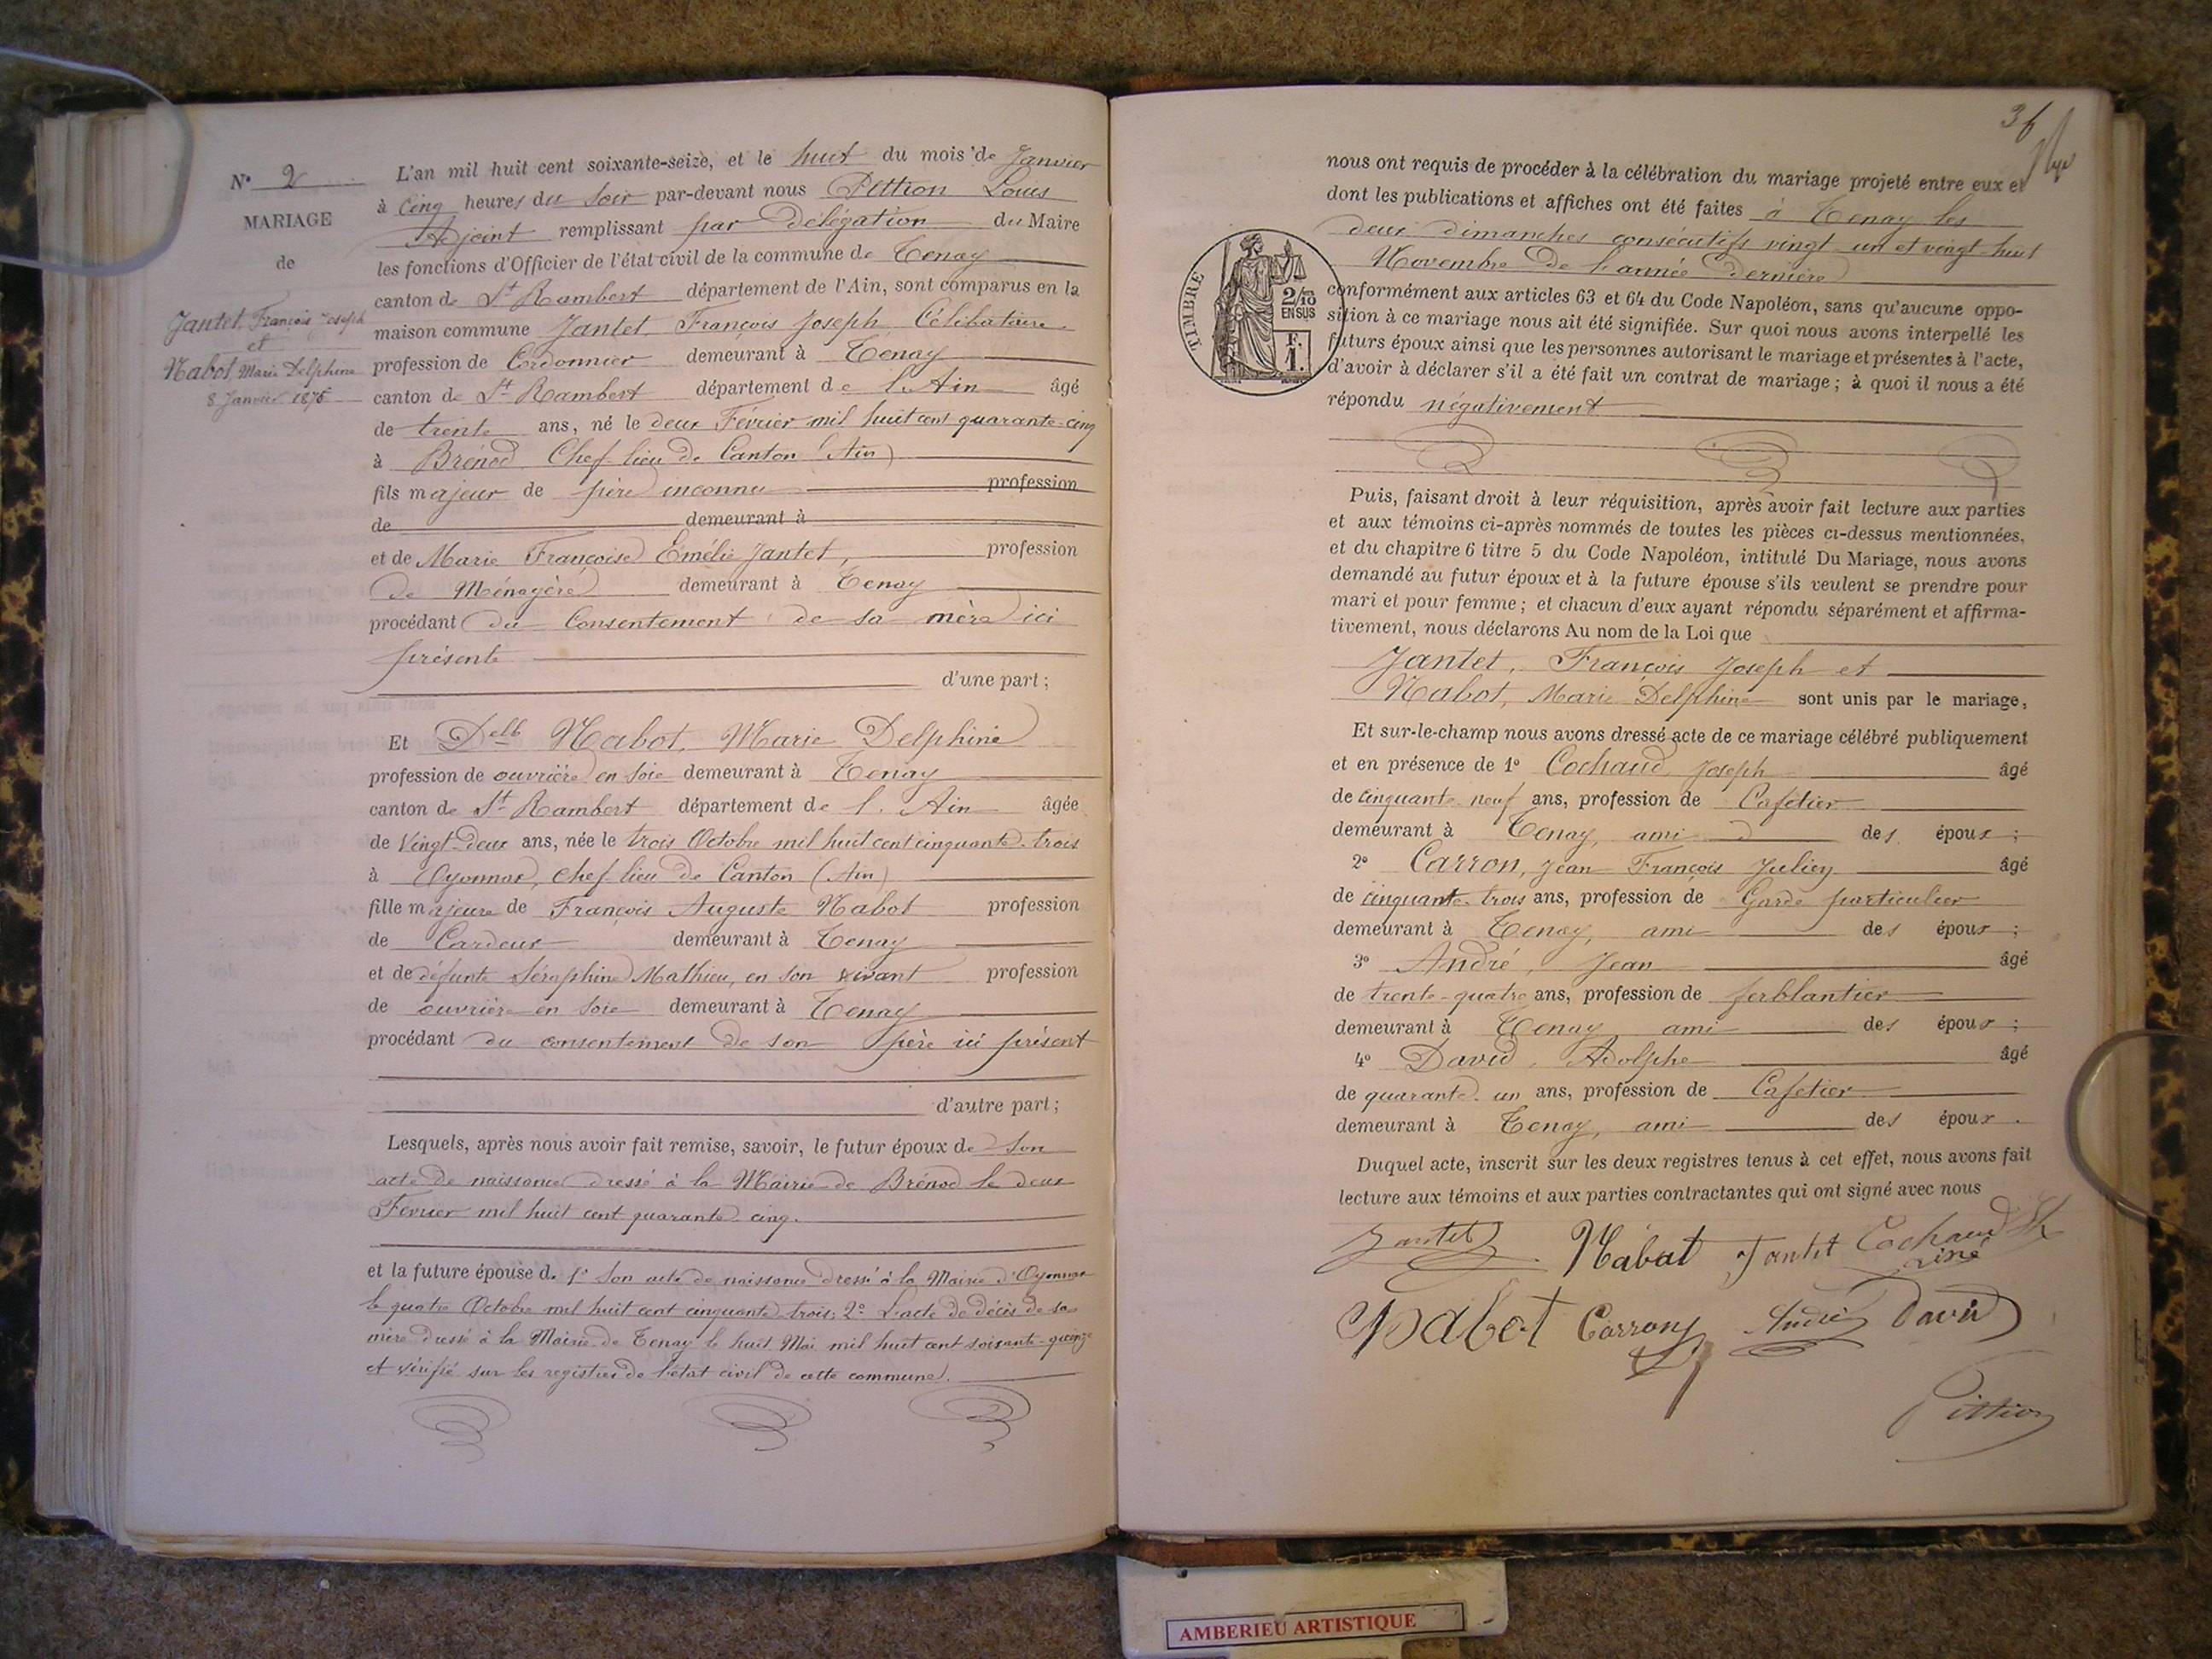 N° 2
MARIAGE
de
Jantet, François Joseph
et
Nabot, Marie Delphine
8 Janvier 1876
L'an mil huit cent soixante-seize, et le huit du mois de Janvier
à Cinq heures du Soir par-devant nous Pittion Louis
Adjoint remplissant par Délégation du Maire
les fonctions d'Officier de l'état civil de la commune de Tenay
canton de St Rambert département de l'Ain, sont comparus en la
maison commune Jantet, François Joseph, Célibataire
profession de Cordonnier demeurant à Tenay
canton de St Rambert département de l'Ain âgé
de trente ans, né le deux Février mil huit cent quarante-cinq
à Brénod, Chef-lieu de Canton (Ain)
fils majeur de père inconnu profession
de demeurant à
et de Marie Françoise Emélie Jantet, profession
de Ménagère demeurant à Tenay
procédant du Consentement de sa mère ici
présente
d'une part;
Et Delle Nabot, Marie Delphine
profession de ouvrière en soie demeurant à Tenay
canton de St Rambert département de l'Ain âgée
de Vingt-deux ans, née le trois Octobre mil huit cent cinquante-trois
à Oyonnax, chef-lieu de Canton (Ain)
fille majeure de François Auguste Nabot profession
de Cardeur demeurant à Tenay
et de défunte Séraphine Mathieu, en son vivant profession
de ouvrière en soie demeurant à Tenay
procédant du consentement de son père ici présent
d'autre part;
Lesquels, après nous avoir fait remise, savoir, le futur époux de son
acte de naissance dressé à la Mairie de Brénod le deux
Février mil huit cent quarante-cinq.
et la future épouse de 1° Son acte de naissance dressé à la Mairie d'Oyonnax
le quatre Octobre mil huit cent cinquante-trois; 2° L'acte de décès de sa
mère dressé à la Mairie de Tenay le huit Mai mil huit cent soixante-quinze
et vérifié sur les registres de l'état civil de cette commune.
36
nous ont requis de procéder à la célébration du mariage projeté entre eux et
dont les publications et affiches ont été faites à Tenay les
deux dimanches consécutifs vingt-un et vingt-huit
Novembre de l'année dernière
TIMBRE
2/10
EN SUS
F.
1.
conformément aux articles 63 et 64 du Code Napoléon, sans qu'aucune oppo-
sition à ce mariage nous ait été signifiée. Sur quoi nous avons interpellé les
futurs époux ainsi que les personnes autorisant le mariage et présentes à l'acte,
d'avoir à déclarer s'il a été fait un contrat de mariage; à quoi il nous a été
répondu négativement
Puis, faisant droit à leur réquisition, après avoir fait lecture aux parties
et aux témoins ci-après nommés de toutes les pièces ci-dessus mentionnées,
et du chapitre 6 titre 5 du Code Napoléon, intitulé Du Mariage, nous avons
demandé au futur époux et à la future épouse s'ils veulent se prendre pour
mari et pour femme; et chacun d'eux ayant répondu séparément et affirma-
tivement, nous déclarons Au nom de la Loi que
Jantet, François Joseph et
Nabot, Marie Delphine sont unis par le mariage,
Et sur-le-champ nous avons dressé acte de ce mariage célébré publiquement
et en présence de 1° Cochaud, Joseph âgé
de cinquante-neuf ans, profession de Cafetier
demeurant à Tenay, ami des époux;
2° Carron, Jean François Julien âgé
de cinquante-trois ans, profession de Garde particulier
demeurant à Tenay, ami des époux;
3° André, Jean âgé
de trente-quatre ans, profession de ferblantier
demeurant à Tenay, ami des époux;
4° David, Adolphe âgé
de quarante-un ans, profession de Cafetier
demeurant à Tenay, ami des époux.
Duquel acte, inscrit sur les deux registres tenus à cet effet, nous avons fait
lecture aux témoins et aux parties contractantes qui ont signé avec nous
Jantet Nabot Jantet Cochaud
ainé
Nabot Carron André David
Pittion
AMBERIEU ARTISTIQUE